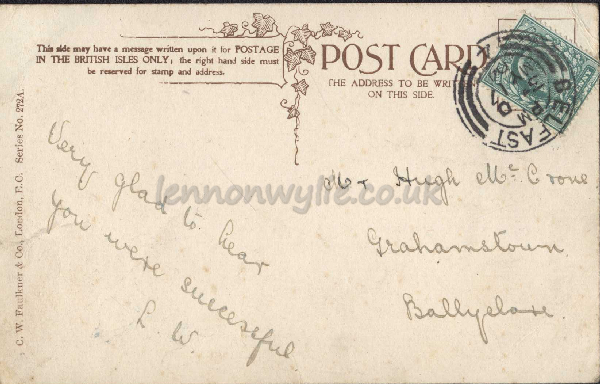 This side may have a message written upon it for POSTAGE
IN THE BRITISH ISLES ONLY; the right hand side must
be reserved for stamp and address.
POST CARD
THE ADDRESS TO BE WRIT
ON THIS SIDE.
BELFAST
C. W. Faulkner & Co., London, E.C. Series No. 272A.
Very glad to hear
you were successful
L. W.
Mr Hugh McCrone
Grahamstown
Ballyclare.
lennonwylie.co.uk